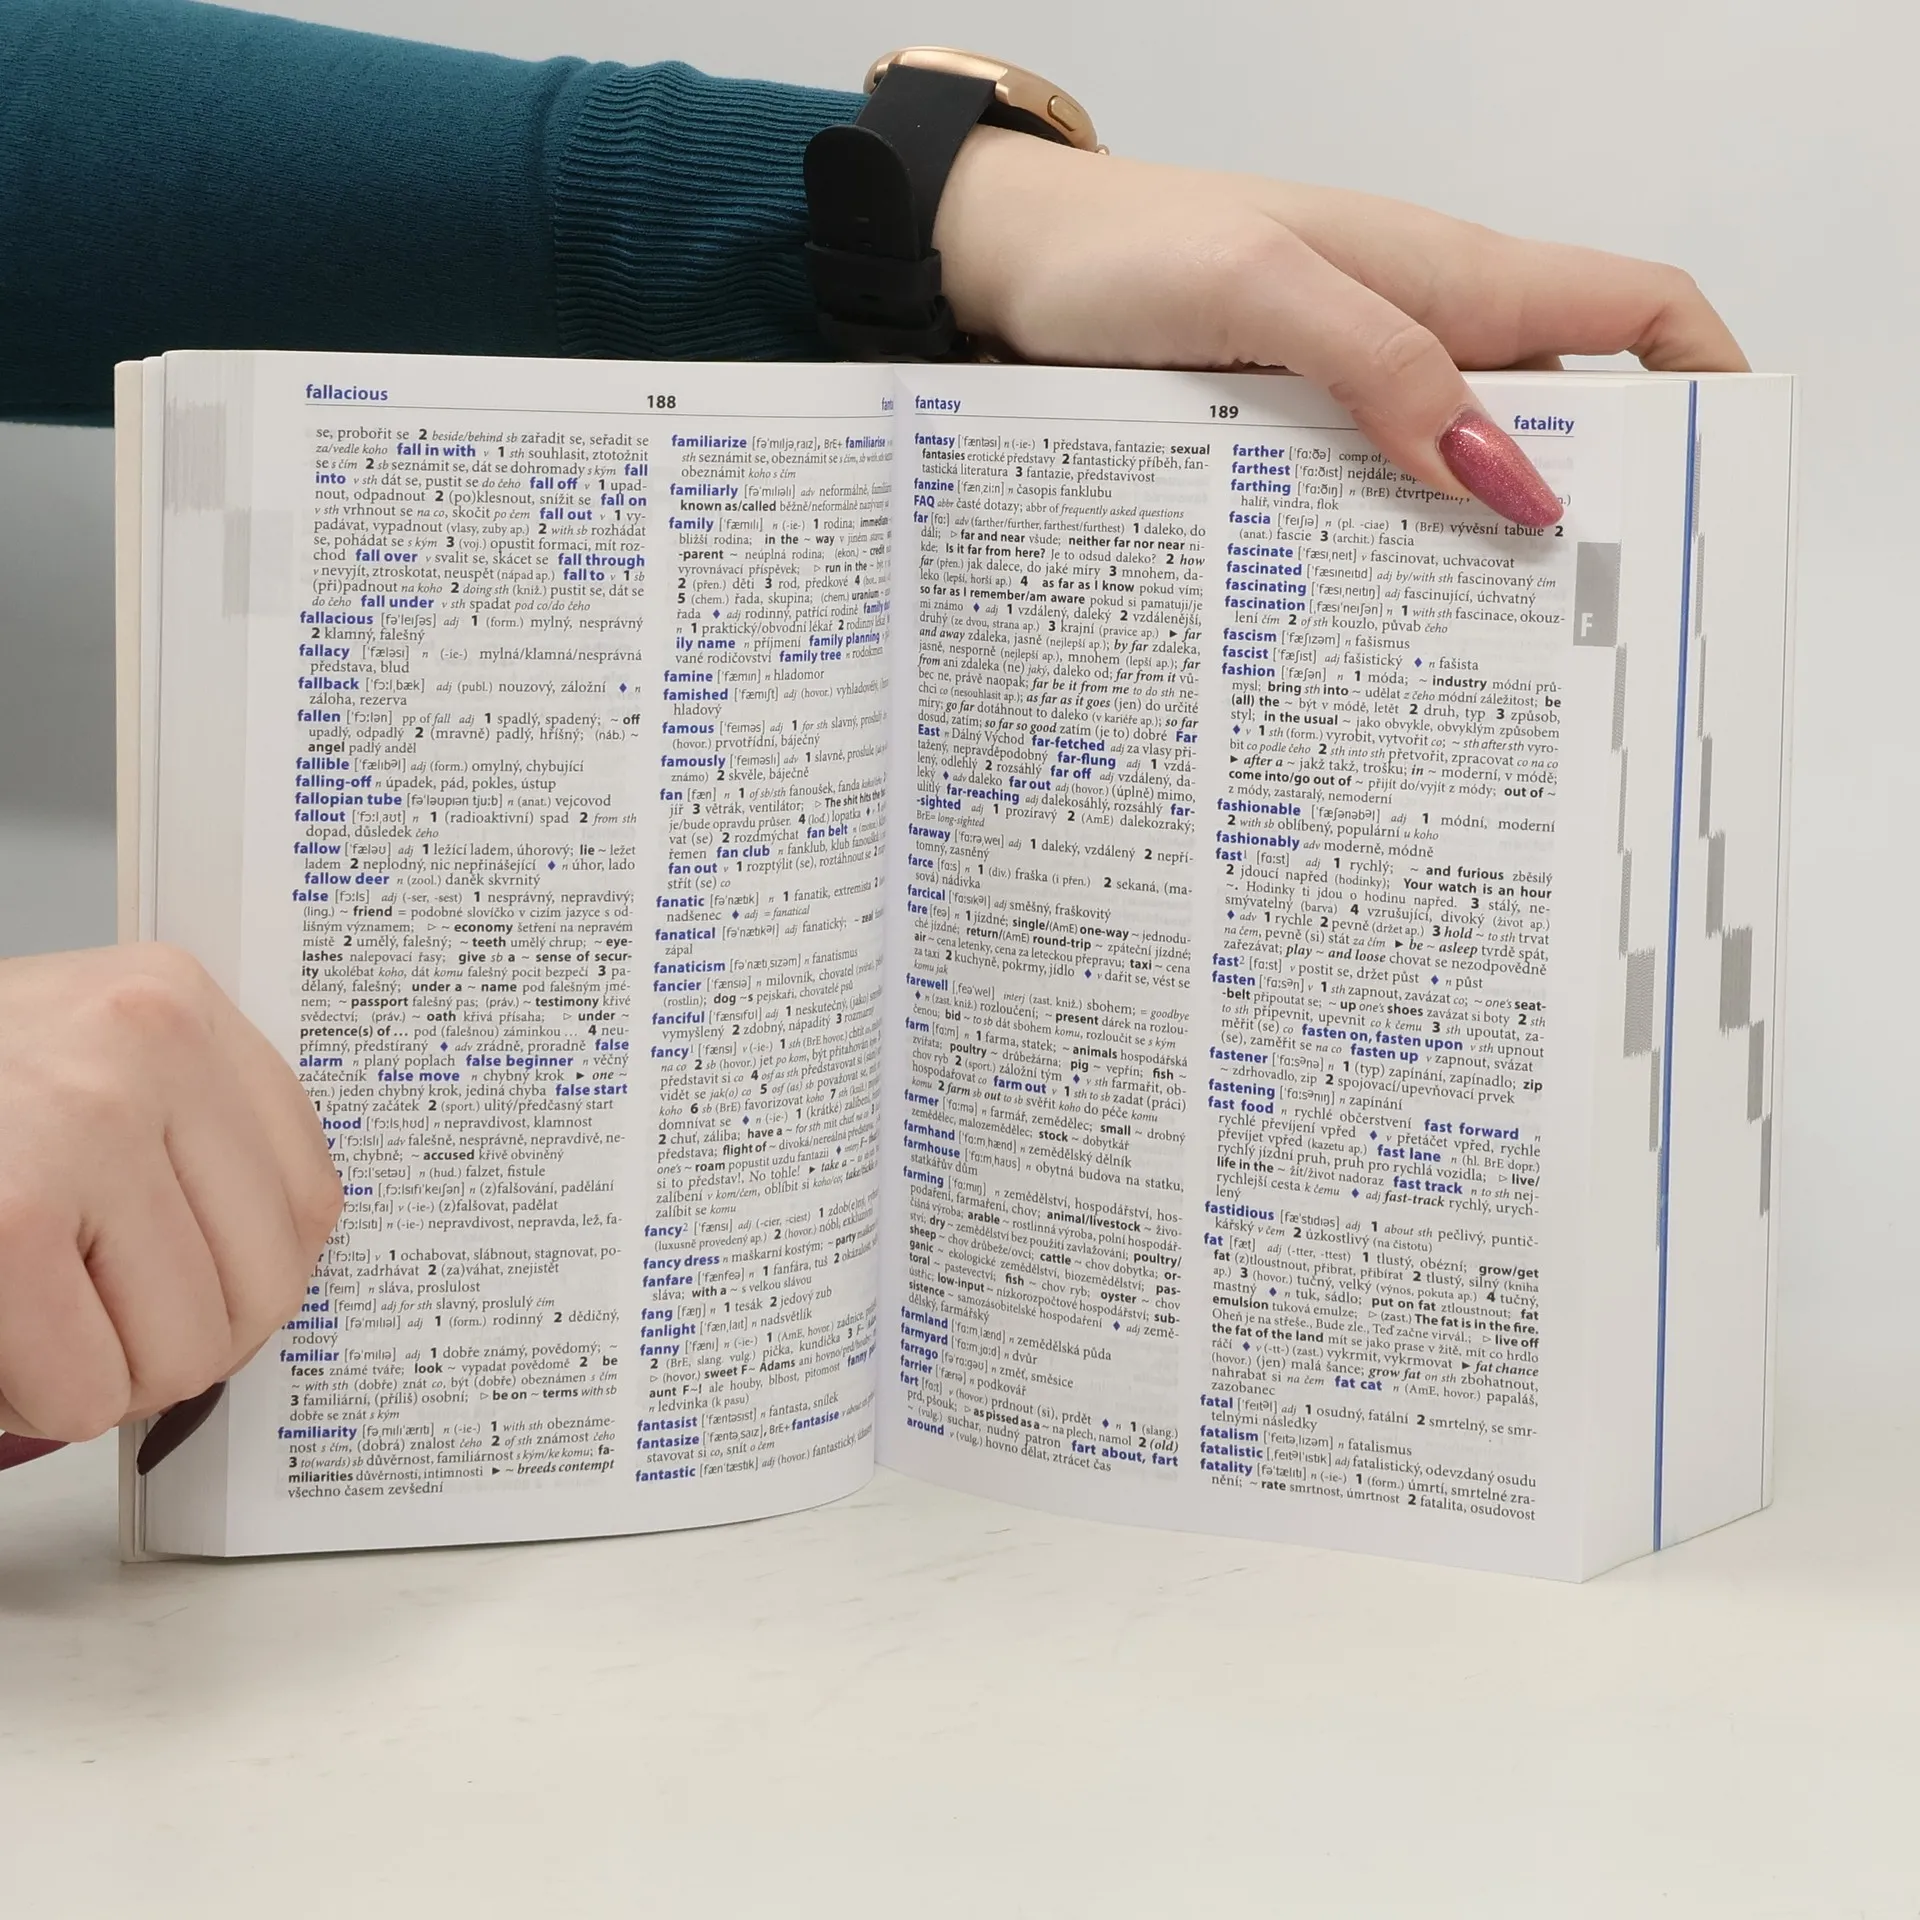 fallacious
188
se, probořit se 2 beside/behind sb zařadit se, seřadit se
za/vedle koho fall in with v 1 sth souhlasit, ztotožnit
se s čím 2 sb seznámit se, dát se dohromady s kým fall
into v sth dát se, pustit se do čeho fall off v 1 upad-
nout, odpadnout 2 (po)klesnout, snížit se fall on
v sth vrhnout se na co, skočit po čem fall out v 1 vy-
padávat, vypadnout (vlasy, zuby ap.) 2 with sb rozhádat
se, pohádat se s kým 3 (voj.) opustit formaci, mít roz-
chod fall over v svalit se, skácet se fall through
v nevyjít, ztroskotat, neuspět (nápad ap.) fall to v 1 sb
(při)padnout na koho 2 doing sth (kniž.) pustit se, dát se
do čeho fall under v sth spadat pod co/do čeho
fallacious [fəˈleɪʃəs] adj 1 (form.) mylný, nesprávný
2 klamný, falešný
fallacy [ˈfæləsɪ] n (-ie-) mylná/klamná/nesprávná
představa, blud
fallback [ˈfɔːlˌbæk] adj (publ.) nouzový, záložní ♦ n
záloha, rezerva
fallen [ˈfɔːlən] pp of fall adj 1 spadlý, spadený; ~ off
upadlý, odpadlý 2 (mravně) padlý, hříšný; (náb.) ~
angel padlý anděl
fallible [ˈfælɪbəl] adj (form.) omylný, chybující
falling-off n úpadek, pád, pokles, ústup
fallopian tube [fəˈləʊpɪən tjuːb] n (anat.) vejcovod
fallout [ˈfɔːlˌaʊt] n 1 (radioaktivní) spad 2 from sth
dopad, důsledek čeho
fallow [ˈfæləʊ] adj 1 ležící ladem, úhorový; lie ~ ležet
ladem 2 neplodný, nic nepřinášející ♦ n úhor, lado
fallow deer n (zool.) daněk skvrnitý
false [fɔːls] adj (-ser, -sest) 1 nesprávný, nepravdivý;
(ling.) ~ friend = podobné slovíčko v cizím jazyce s od-
lišným významem; ▷ ~ economy šetření na nepravém
místě 2 umělý, falešný; ~ teeth umělý chrup; ~ eye-
lashes nalepovací řasy; give sb a ~ sense of secur-
ity ukolébat koho, dát komu falešný pocit bezpečí 3 pa-
dělaný, falešný; under a ~ name pod falešným jmé-
nem; ~ passport falešný pas; (práv.) ~ testimony křivé
svědectví; (práv.) ~ oath křivá přísaha; ▷ under ~
pretence(s) of ... pod (falešnou) záminkou ... 4 neu-
přímný, předstíraný ♦ adv zrádně, proradně false
alarm n planý poplach false beginner n věčný
začátečník false move n chybný krok ► one ~
jeden chybný krok, jediná chyba false start
1 špatný začátek 2 (sport.) ulitý/předčasný start
hood [ˈfɔːlsˌhʊd] n nepravdivost, klamnost
[ˈfɔːlslɪ] adv falešně, nesprávně, nepravdivě, ne-
chybně; ~ accused křivě obviněný
n (hud.) falzet, fistule
tion [ˌfɔːlsɪfɪˈkeɪʃən] n (z)falšování, padělání
v (-ie-) (z)falšovat, padělat
n (-ie-) nepravdivost, nepravda, lež, fa-
[ˈfɔːltə] v 1 ochabovat, slábnout, stagnovat, po-
zadrhávat 2 (za)váhat, znejistět
[feɪm] n sláva, proslulost
[feɪmd] adj for sth slavný, proslulý čím
familial [fəˈmɪlɪəl] adj 1 (form.) rodinný 2 dědičný,
rodový
familiar [fəˈmɪlɪə] adj 1 dobře známý, povědomý; ~
faces známé tváře; look ~ vypadat povědomě 2 be
~ with sth (dobře) znát co, být (dobře) obeznámen s čím
3 familiární, (příliš) osobní; ▷ be on ~ terms with sb
dobře se znát s kým
familiarity [fəˌmɪlɪˈærɪtɪ] n (-ie-) 1 with sth obezname-
nost s čím, (dobrá) znalost čeho 2 of sth známost čeho
3 to(wards) sb důvěrnost, familiárnost s kým/ke komu; fa-
miliarities důvěrnosti, intimnosti ► ~ breeds contempt
všechno časem zevšední
familiarize [fəˈmɪljəˌraɪz], BrE+ familiarise
sth seznámit se, obeznámit se s čím,
obeznámit koho s čím
familiarly [fəˈmɪlɪəlɪ] adv neformálně,
known as/called běžně/neformálně
family [ˈfæmɪlɪ] n (-ie-) 1 rodina;
bližší rodina; in the ~ way v jiném stavu;
-parent ~ neúplná rodina; (ekon.) ~ credit
vyrovnávací příspěvek; ▷ run in the ~
2 (přen.) děti 3 rod, předkové 4
5 (chem.) řada, skupina; (chem.) uranium ~
řada ♦ adj rodinný, patřící rodině family
n 1 praktický/obvodní lékař 2 rodinný
ily name n příjmení family planning
vané rodičovství family tree n rodokmen
famine [ˈfæmɪn] n hladomor
famished [ˈfæmɪʃt] adj (hovor.) vyhladovělý,
hladový
famous [ˈfeɪməs] adj 1 for sth slavný,
(hovor.) prvotřídní, báječný
famously [ˈfeɪməslɪ] adv 1 slavně, proslule
známo) 2 skvěle, báječně
fan [fæn] n 1 of sb/sth fanoušek, fanda
3 větrák, ventilátor; ▷ The shit hits the
je/bude opravdu průser. 4 (lod.) lopatka
vat (se) 2 rozdmýchat fan belt n
řemen fan club n fanklub, klub
fan out v 1 rozptýlit (se), roztáhnout se 2
střít (se) co
fanatic [fəˈnætɪk] n 1 fanatik, extremista 2
nadšenec ♦ adj = fanatical
fanatical [fəˈnætɪkəl] adj fanatický; ~ zeal
zápal
fanaticism [fəˈnætɪˌsɪzəm] n fanatismus
fancier [ˈfænsɪə] n milovník, chovatel
(rostlin); dog ~s pejskaři, chovatelé psů
fanciful [ˈfænsɪfʊl] adj 1 neskutečný, (jako)
vymyšlený 2 zdobný, nápaditý 3
fancy¹ [ˈfænsɪ] v (-ie-) 1 sth (BrE, hovor.) chtít
na co 2 sb (hovor.) jet po kom, být přitahován
představit si co 4 osf as sth představovat si
vidět se jak(o) co 5 osf (as) sb považovat se,
koho 6 sb (BrE) favorizovat koho 7 sth (kniž.)
domnívat se ♦ n (-ie-) 1 (krátké) zalíbení,
2 chuť, záliba; have a ~ for sth mít chuť
představa; flight of ~ divoká/nereálná
one's ~ roam popustit uzdu fantazii
si to představ!, No tohle! ► take a ~
zalíbení v kom/čem, oblíbit si koho/co;
zalíbit se komu
fancy² [ˈfænsɪ] adj (-cier, -ciest) 1
(luxusně provedený ap.) 2 (hovor.) nóbl,
fancy dress n maškarní kostým; ~ party
fanfare [ˈfænfeə] n 1 fanfára, tuš 2
sláva; with a ~ s velkou slávou
fang [fæŋ] n 1 tesák 2 jedový zub
fanlight [ˈfænˌlaɪt] n nadsvětlík
fanny [ˈfænɪ] n (-ie-) 1 (AmE, hovor.) zadnice,
2 (BrE, slang. vulg.) pička, kundička 3
▷ (hovor.) sweet F~ Adams ani hovno
aunt F~! ale houby, blbost, pitomost
n ledvinka (k pasu)
fantasist [ˈfæntəsɪst] n fantasta, snílek
fantasize [ˈfæntəˌsaɪz], BrE+ fantasise
stavovat si co, snít o čem
fantastic [fænˈtæstɪk] adj (hovor.) fantastický,
fantasy
189
fatality
fantasy [ˈfæntəsɪ] n (-ie-) 1 představa, fantazie; sexual
fantasies erotické představy 2 fantastický příběh, fan-
tastická literatura 3 fantazie, představivost
fanzine [ˈfænˌziːn] n časopis fanklubu
FAQ abbr časté dotazy; abbr of frequently asked questions
far [fɑː] adv (farther/further, farthest/furthest) 1 daleko, do
dáli; ▷ far and near všude; neither far nor near ni-
kde; Is it far from here? Je to odsud daleko? 2 how
far (přen.) jak dalece, do jaké míry 3 mnohem, da-
leko (lepší, horší ap.) 4 as far as I know pokud vím;
so far as I remember/am aware pokud si pamatuji/je
mi známo ♦ adj 1 vzdálený, daleký 2 vzdálenější,
druhý (ze dvou, strana ap.) 3 krajní (pravice ap.) ► far
and away zdaleka, jasně (nejlepší ap.); by far zdaleka,
jasně, nesporně (nejlepší ap.), mnohem (lepší ap.); far
from ani zdaleka (ne) jaký, daleko od; far from it vů-
bec ne, právě naopak; far be it from me to do sth ne-
chci co (nesouhlasit ap.); as far as it goes (jen) do určité
míry; go far dotáhnout to daleko (v kariéře ap.); so far
dosud, zatím; so far so good zatím (je to) dobré Far
East n Dálný Východ far-fetched adj za vlasy při-
tažený, nepravděpodobný far-flung adj 1 vzdá-
lený, odlehlý 2 rozsáhlý far off adj vzdálený, da-
leký ♦ adv daleko far out adj (hovor.) (úplně) mimo,
ulitlý far-reaching adj dalekosáhlý, rozsáhlý far-
-sighted adj 1 prozíravý 2 (AmE) dalekozraký;
BrE= long-sighted
faraway [ˈfɑːrəˌweɪ] adj 1 daleký, vzdálený 2 nepří-
tomný, zasněný
farce [fɑːs] n 1 (div.) fraška (i přen.) 2 sekaná, (ma-
sová) nádivka
farcical [ˈfɑːsɪkəl] adj směšný, fraškovitý
fare [feə] n 1 jízdné; single/(AmE) one-way ~ jednodu-
ché jízdné; return/(AmE) round-trip ~ zpáteční jízdné;
air ~ cena letenky, cena za leteckou přepravu; taxi ~ cena
za taxi 2 kuchyně, pokrmy, jídlo ♦ v dařit se, vést se
komu jak
farewell [ˌfeəˈwel] interj (zast. kniž.) sbohem; = goodbye
♦ n (zast. kniž.) rozloučení; ~ present dárek na rozlou-
čenou; bid ~ to sb dát sbohem komu, rozloučit se s kým
farm [fɑːm] n 1 farma, statek; ~ animals hospodářská
zvířata; poultry ~ drůbežárna; pig ~ vepřín; fish ~
chov ryb 2 (sport.) záložní tým ♦ v sth farmařit, ob-
hospodařovat co farm out v 1 sth to sb zadat (práci)
komu 2 farm sb out to sb svěřit koho do péče komu
farmer [ˈfɑːmə] n farmář, zemědělec; small ~ drobný
zemědělec, malozemědělec; stock ~ dobytkář
farmhand [ˈfɑːmˌhænd] n zemědělský dělník
farmhouse [ˈfɑːmˌhaʊs] n obytná budova na statku,
statkářův dům
farming [ˈfɑːmɪŋ] n zemědělství, hospodářství, hos-
podaření, farmaření, chov; animal/livestock ~ živo-
čišná výroba; arable ~ rostlinná výroba, polní hospodář-
ství; dry ~ zemědělství bez použití zavlažování; poultry/
sheep ~ chov drůbeže/ovcí; cattle ~ chov dobytka; or-
ganic ~ ekologické zemědělství, biozemědělství; pas-
toral ~ pastevectví; fish ~ chov ryb; oyster ~ chov
ústřic; low-input ~ nízkorozpočtové hospodářství; sub-
sistence ~ samozásobitelské hospodaření ♦ adj země-
dělský, farmářský
farmland [ˈfɑːmˌlænd] n zemědělská půda
farmyard [ˈfɑːmˌjɑːd] n dvůr
farrago [fəˈrɑːgəʊ] n změť, směsice
farrier [ˈfærɪə] n podkovář
fart [fɑːt] v (hovor.) prdnout (si), prdět ♦ n 1 (slang.)
prd, pšouk; ▷ as pissed as a ~ na plech, namol 2 (old)
~ (vulg.) suchar, nudný patron fart about, fart
around v (vulg.) hovno dělat, ztrácet čas
farther [ˈfɑːðə] comp of
farthest [ˈfɑːðɪst] nejdále;
farthing [ˈfɑːðɪŋ] n (BrE)
halíř, vindra, flok
fascia [ˈfeɪʃɪə] n (pl. -ciae) 1 (BrE) vývěsní tabule 2
(anat.) fascie 3 (archit.) fascia
fascinate [ˈfæsɪˌneɪt] v fascinovat, uchvacovat
fascinated [ˈfæsɪneɪtɪd] adj by/with sth fascinovaný čím
fascinating [ˈfæsɪˌneɪtɪŋ] adj fascinující, úchvatný
fascination [ˌfæsɪˈneɪʃən] n 1 with sth fascinace, okouz-
lení čím 2 of sth kouzlo, půvab čeho
fascism [ˈfæʃɪzəm] n fašismus
fascist [ˈfæʃɪst] adj fašistický ♦ n fašista
fashion [ˈfæʃən] n 1 móda; ~ industry módní prů-
mysl; bring sth into ~ udělat z čeho módní záležitost; be
(all) the ~ být v módě, letět 2 druh, typ 3 způsob,
styl; in the usual ~ jako obvykle, obvyklým způsobem
♦ v 1 sth (form.) vyrobit, vytvořit co; ~ sth after sth vyro-
bit co podle čeho 2 sth into sth přetvořit, zpracovat co na co
► after a ~ jakž takž, trošku; in ~ moderní, v módě;
come into/go out of ~ přijít do/vyjít z módy; out of ~
z módy, zastaralý, nemoderní
fashionable [ˈfæʃənəbəl] adj 1 módní, moderní
2 with sb oblíbený, populární u koho
fashionably adv moderně, módně
fast¹ [fɑːst] adj 1 rychlý; ~ and furious zběsilý
2 jdoucí napřed (hodinky); Your watch is an hour
~. Hodinky ti jdou o hodinu napřed. 3 stálý, ne-
smývatelný (barva) 4 vzrušující, divoký (život ap.)
♦ adv 1 rychle 2 pevně (držet ap.) 3 hold ~ to sth trvat
na čem, pevně (si) stát za čím ► be ~ asleep tvrdě spát,
zařezávat; play ~ and loose chovat se nezodpovědně
fast² [fɑːst] v postit se, držet půst ♦ n půst
fasten [ˈfɑːsən] v 1 sth zapnout, zavázat co; ~ one's seat-
-belt připoutat se; ~ up one's shoes zavázat si boty 2 sth
to sth připevnit, upevnit co k čemu 3 sth upoutat, za-
měřit (se) co fasten on, fasten upon v sth upnout
(se), zaměřit se na co fasten up v zapnout, svázat
fastener [ˈfɑːsənə] n 1 (typ) zapínání, zapínadlo; zip
~ zdrhovadlo, zip 2 spojovací/upevňovací prvek
fastening [ˈfɑːsənɪŋ] n zapínání
fast food n rychlé občerstvení fast forward n
rychlé převíjení vpřed ♦ v přetáčet vpřed, rychle
převíjet vpřed (kazetu ap.) fast lane n (hl. BrE dopr.)
rychlý jízdní pruh, pruh pro rychlá vozidla; ▷ live/
life in the ~ žít/život nadoraz fast track n to sth nej-
rychlejší cesta k čemu ♦ adj fast-track rychlý, urych-
lený
fastidious [fæˈstɪdɪəs] adj 1 about sth pečlivý, puntič-
kářský v čem 2 úzkostlivý (na čistotu)
fat [fæt] adj (-tter, -ttest) 1 tlustý, obézní; grow/get
fat (z)tloustnout, přibrat, přibírat 2 tlustý, silný (kniha
ap.) 3 (hovor.) tučný, velký (výnos, pokuta ap.) 4 tučný,
mastný ♦ n tuk, sádlo; put on fat ztloustnout; fat
emulsion tuková emulze; ▷ (zast.) The fat is in the fire.
Oheň je na střeše., Bude zle., Teď začne virvál.; ▷ live off
the fat of the land mít se jako prase v žitě, mít co hrdlo
ráčí ♦ v (-tt-) (zast.) vykrmit, vykrmovat ► fat chance
(hovor.) (jen) malá šance; grow fat on sth zbohatnout,
nahrabat si na čem fat cat n (AmE, hovor.) papaláš,
zazobanec
fatal [ˈfeɪtəl] adj 1 osudný, fatální 2 smrtelný, se smr-
telnými následky
fatalism [ˈfeɪtəˌlɪzəm] n fatalismus
fatalistic [ˌfeɪtəlˈɪstɪk] adj fatalistický, odevzdaný osudu
fatality [fəˈtælɪtɪ] n (-ie-) 1 (form.) úmrtí, smrtelné zra-
nění; ~ rate smrtnost, úmrtnost 2 fatalita, osudovost
F